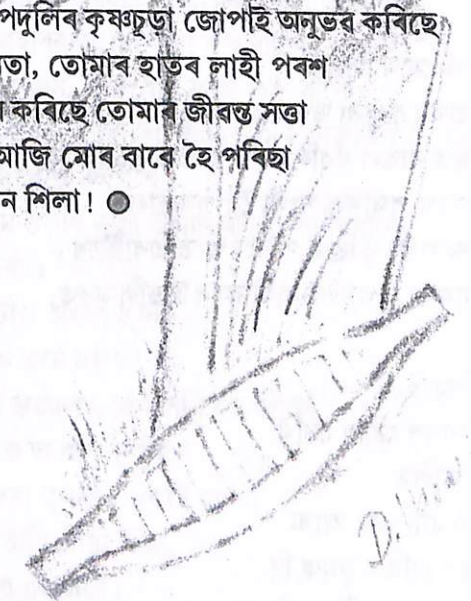 পদুলিৰ কৃষ্ণচূড়া জোপাই অনুভৱ কৰিছে
তোমাৰ হাতৰ লাহী পৰশ
কৰিছে তোমাৰ জীৱন্ত সত্তা
আজি মোৰ বাবে হৈ পৰিছা
শিলা! ●